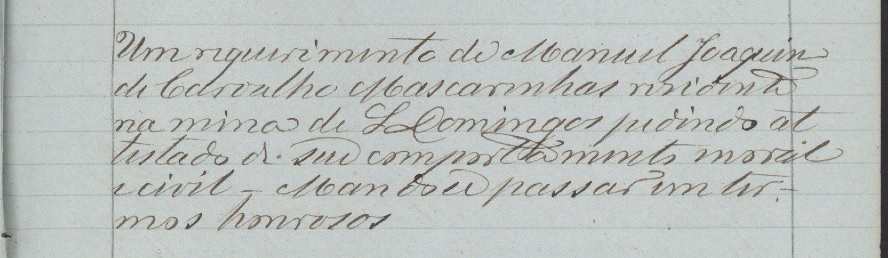 Um riquirimento de Manuel Joaquim
de Carvalho Mascarinhas risidente
na mina de S. Domingos pidindo at
tistado de seu comportamento moral
e civil – Mandou passar im tir-
mos honrosos